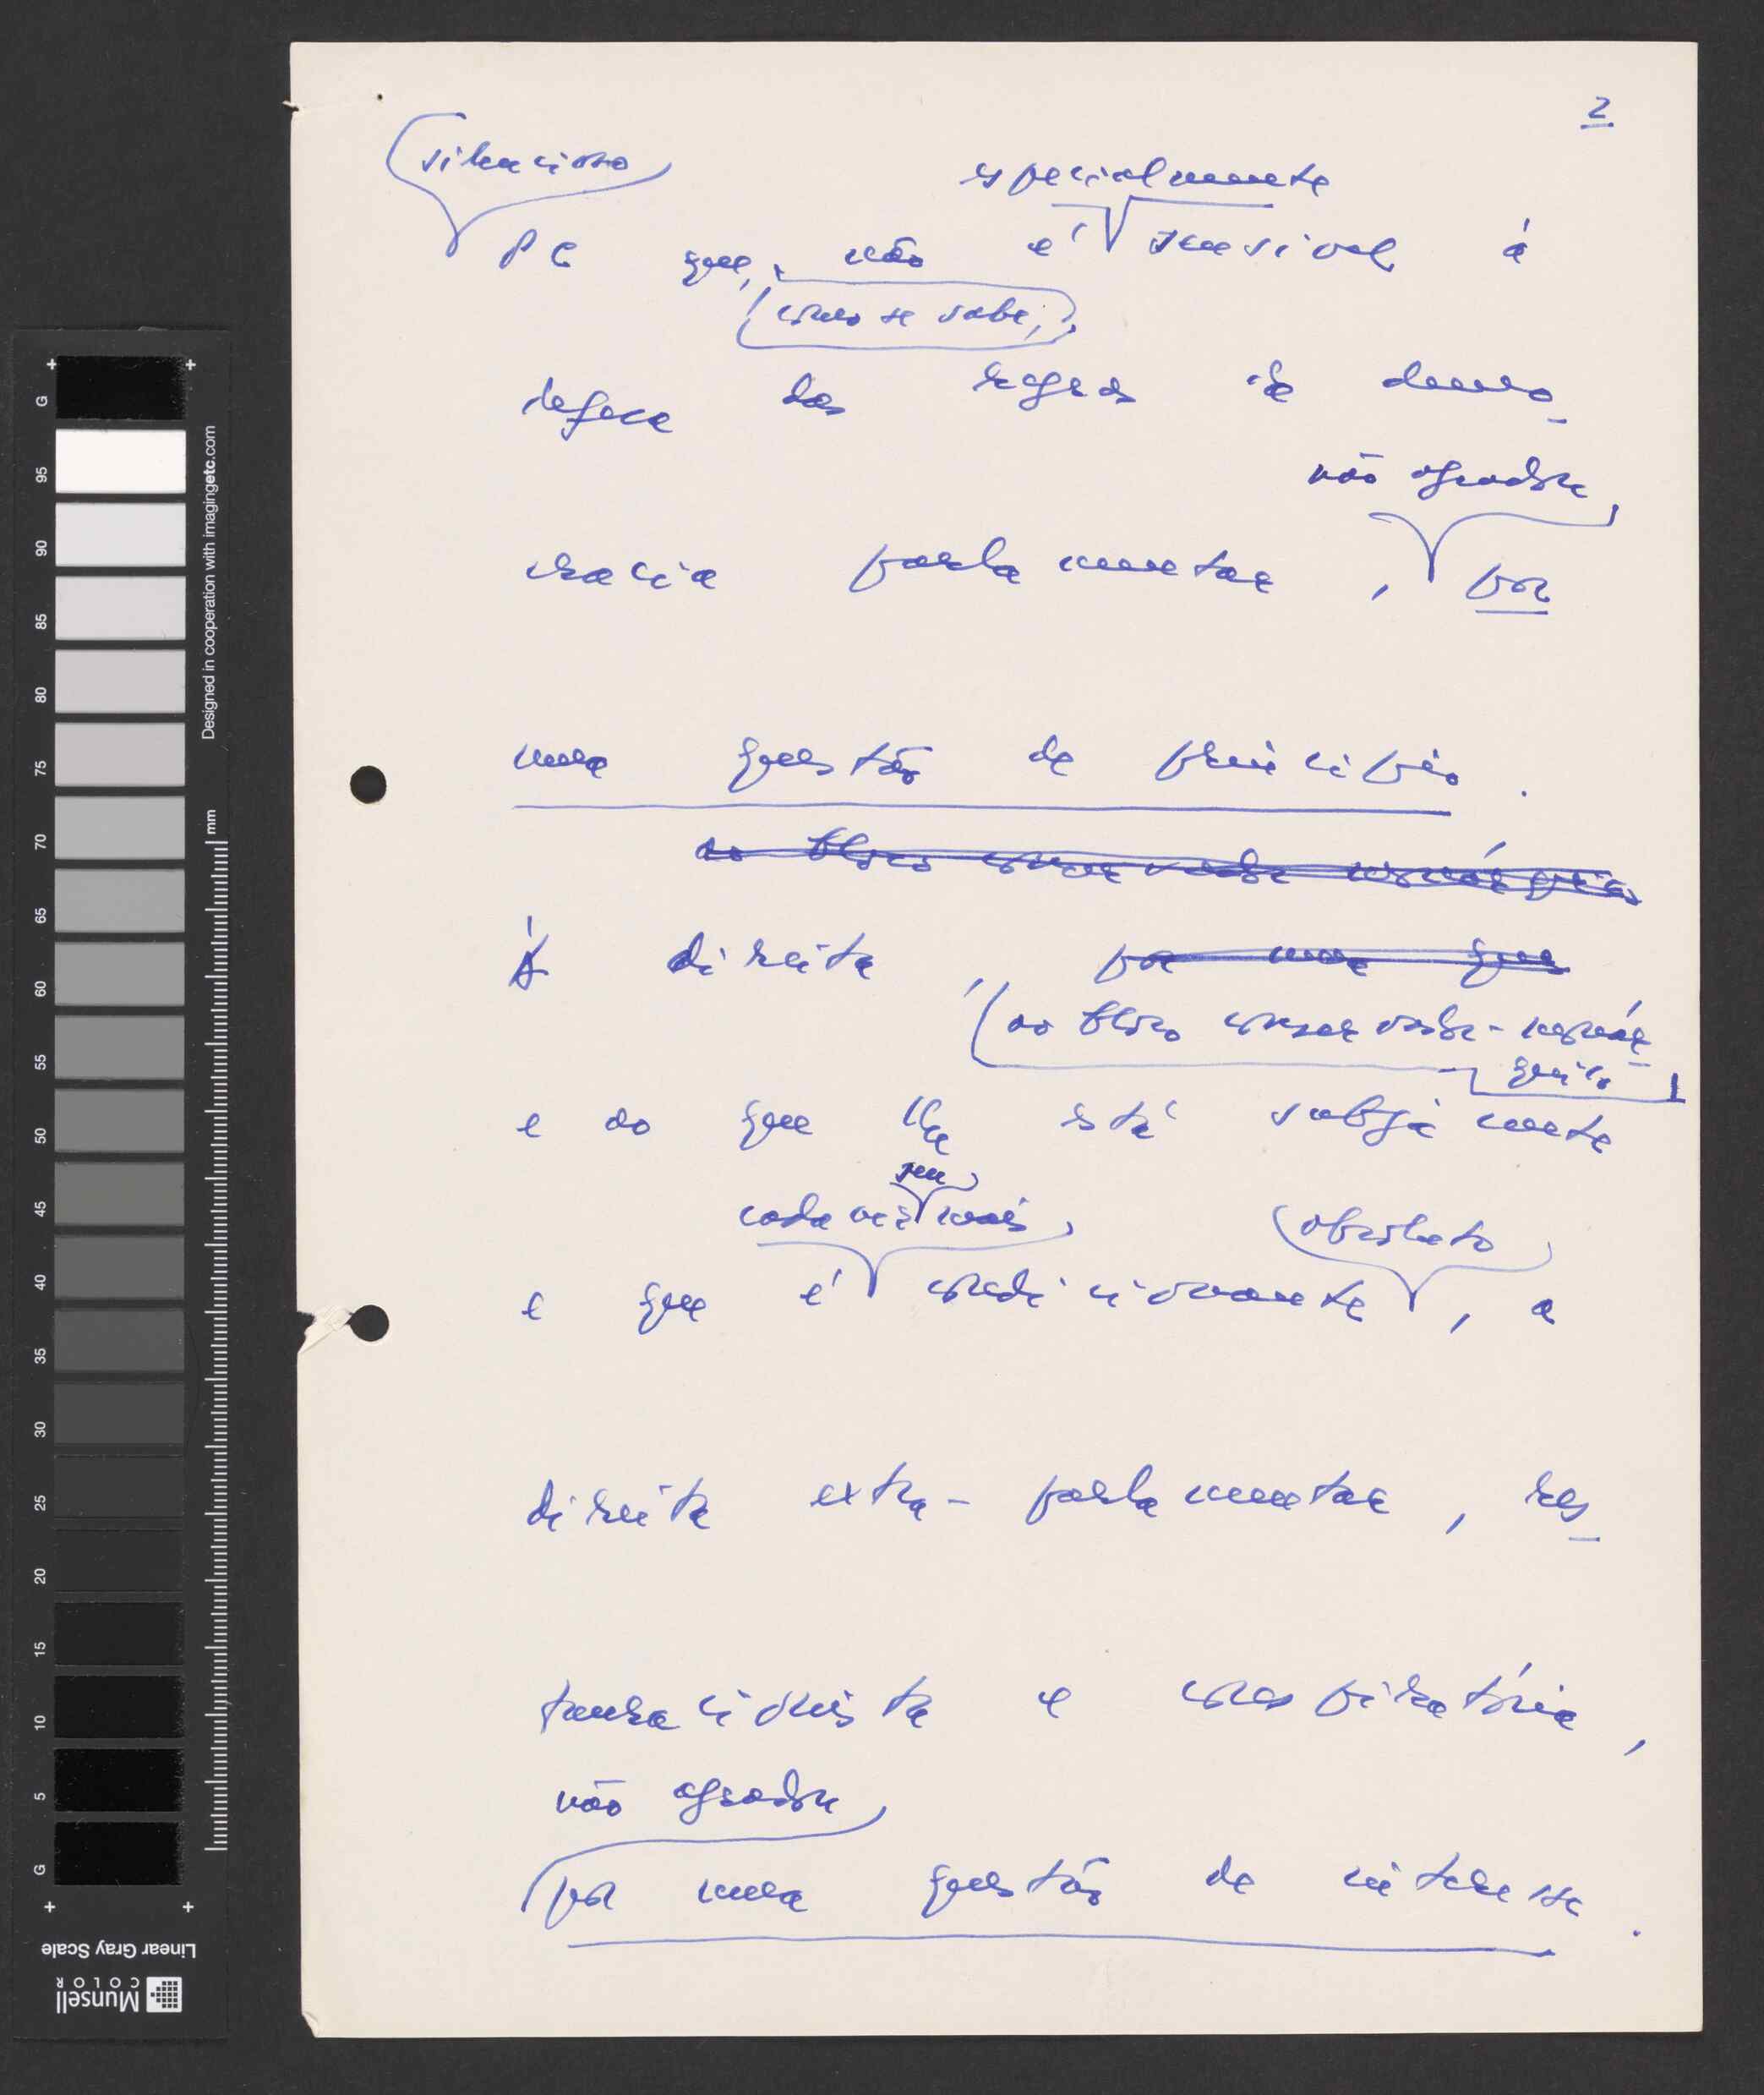 2
silencioso
especialmente
PC que, não é sensível à
como se sabe,
defesa das regras da demo-
não agradou,
cracia parlamentar, por
uma questão de princípio.
ao bloco conservador-monárquico
À direita, por uma ques
(ao bloco conservador-monár-
quico
e ao que lhe está subjacente
sem
cada vez mais
obsoleto
e que é condicionante, a
direita extra-parlamentar, res-
tauracionista e conspiratória,
não agradou
por uma questão de interesse.
G
95
90
85
80
75
70
65
60
55
50
45
40
35
30
25
20
15
10
5
G
mm
Designed in cooperation with imagingetc.com
Linear Gray Scale
Munsell
COLOR